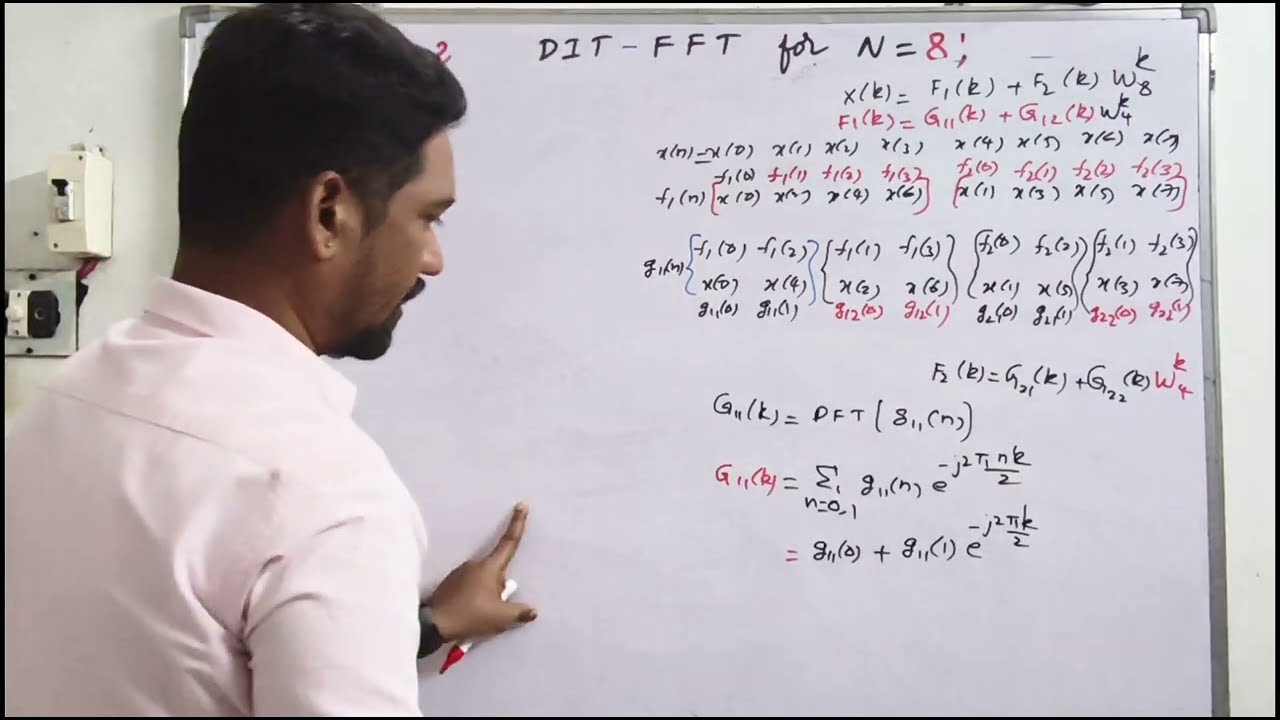 2 DIT-FFT for N=8;
X(k) = F₁(k) + F₂(k) W₈ᵏ
F₁(k) = G₁₁(k) + G₁₂(k) W₄ᵏ
x(n) = x(0) x(1) x(2) x(3) x(4) x(5) x(6) x(7)
f₁(0) f₁(1) f₁(2) f₁(3) f₂(0) f₂(1) f₂(2) f₂(3)
f₁(n) [x(0) x(2) x(4) x(6)] [x(1) x(3) x(5) x(7)]
g₁₁(n) {f₁(0) f₁(2)} {f₁(1) f₁(3)} {f₂(0) f₂(2)} {f₂(1) f₂(3)}
x(0) x(4) x(2) x(6) x(1) x(5) x(3) x(7)
g₁₁(0) g₁₁(1) g₁₂(0) g₁₂(1) g₂₁(0) g₂₁(1) g₂₂(0) g₂₂(1)
F₂(k) = G₂₁(k) + G₂₂(k) W₄ᵏ
G₁₁(k) = DFT[g₁₁(n)]
G₁₁(k) = Σ n=0,1 g₁₁(n) e^(-j2πnk/2)
= g₁₁(0) + g₁₁(1) e^(-j2πk/2)